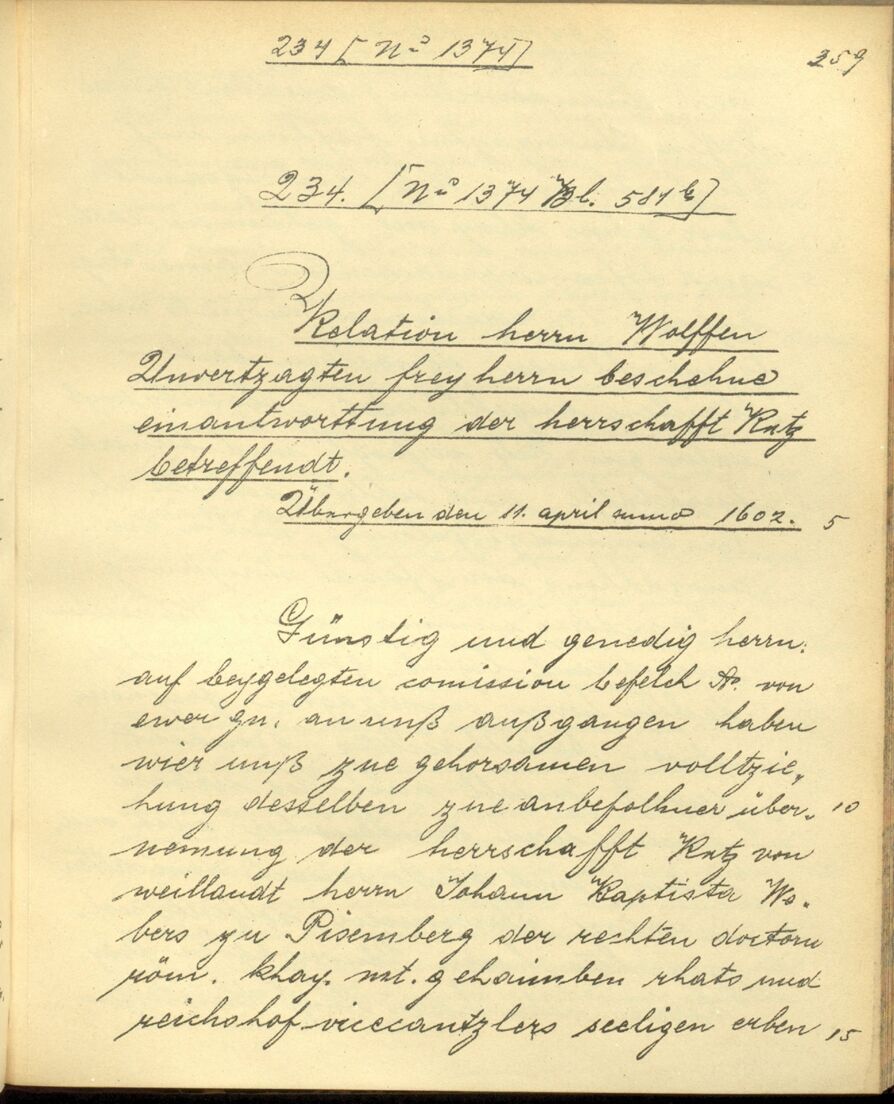 234 [Nº 1374]
259
234. [Nº 1374 Bl. 581b]
Relation herrn Wolffen
Unvertzagten freyherrn beschehne
einantworttung der herrschafft Retz
betreffendt.
Übergeben den 11. april anno 1602. 5
Günstig und genedig herrn.
auf beygelegten comission befelch so von
ewer gn. an unß außgangen haben
wier unß zue gehorsamen volltzie„
hung desselben zue anbefolhner über„ 10
nemung der herrschafft Retz von
weillandt herrn Johann Baptista We„
bers zu Pisemberg der rechten doctorn
röm. khay. mt. gehaimben rhats und
reichshof vicecantzlers seeligen erben 15